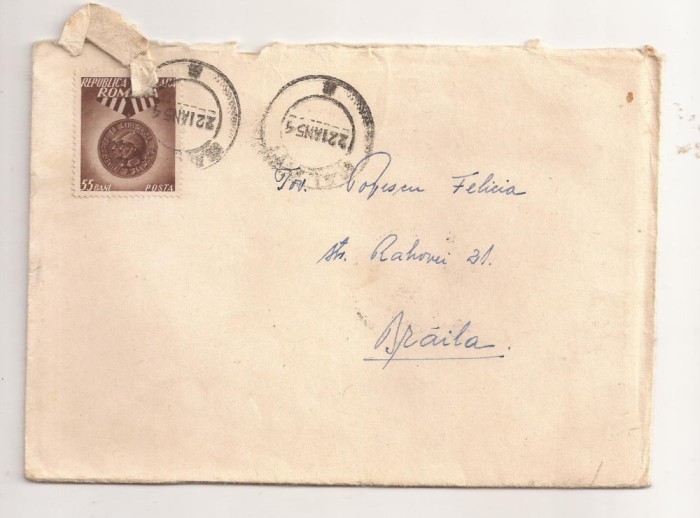 REPUBLICA
ROMÂNĂ
55 BANI POSTA
22 IAN 54
22 IAN 54
Tov. Popescu Felicia
str. Rahovei 21.
Brăila.